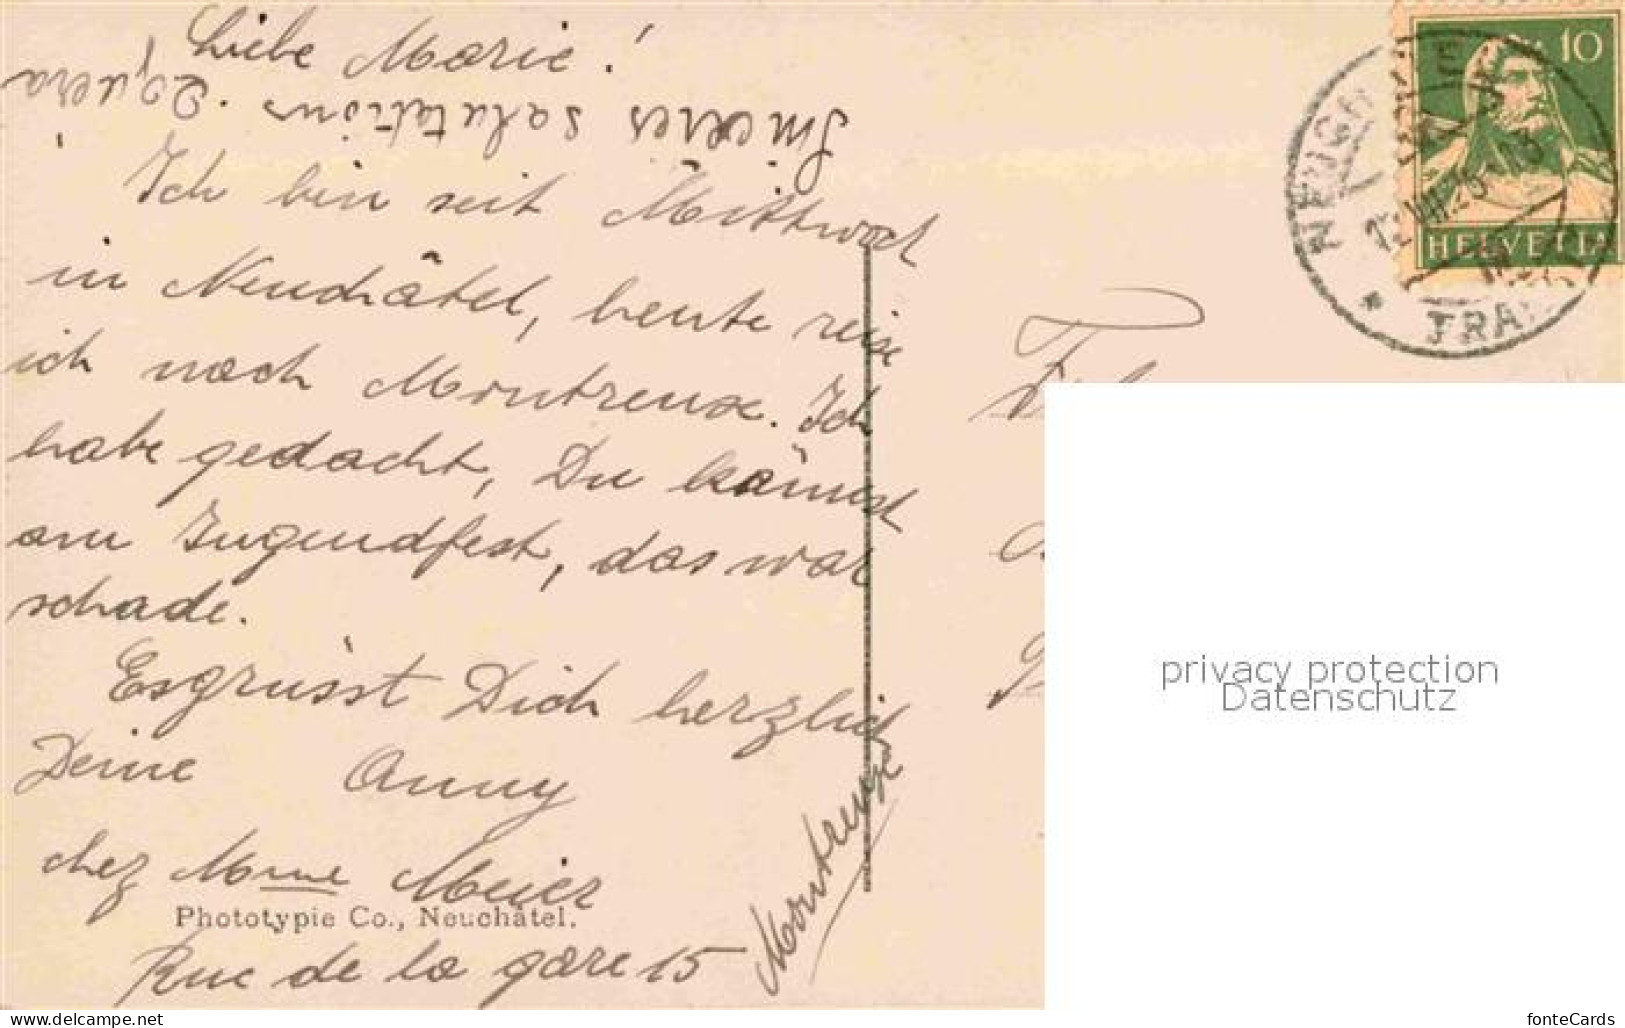 Liebe Marie!
Sincères salutations.
Ich bin seit Mittwoch
in Neuchâtel, heute reise
ich nach Montreux. Ich
habe gedacht, Du kämest
am Jugendfest, das war
schade.
Es grüsst Dich herzlich
Deine Anny
chez Mme Meier
Phototypie Co., Neuchâtel.
Rue de la gare 15
Montreux
10
HELVETIA
privacy protection
Datenschutz
www.delcampe.net
fonteCards